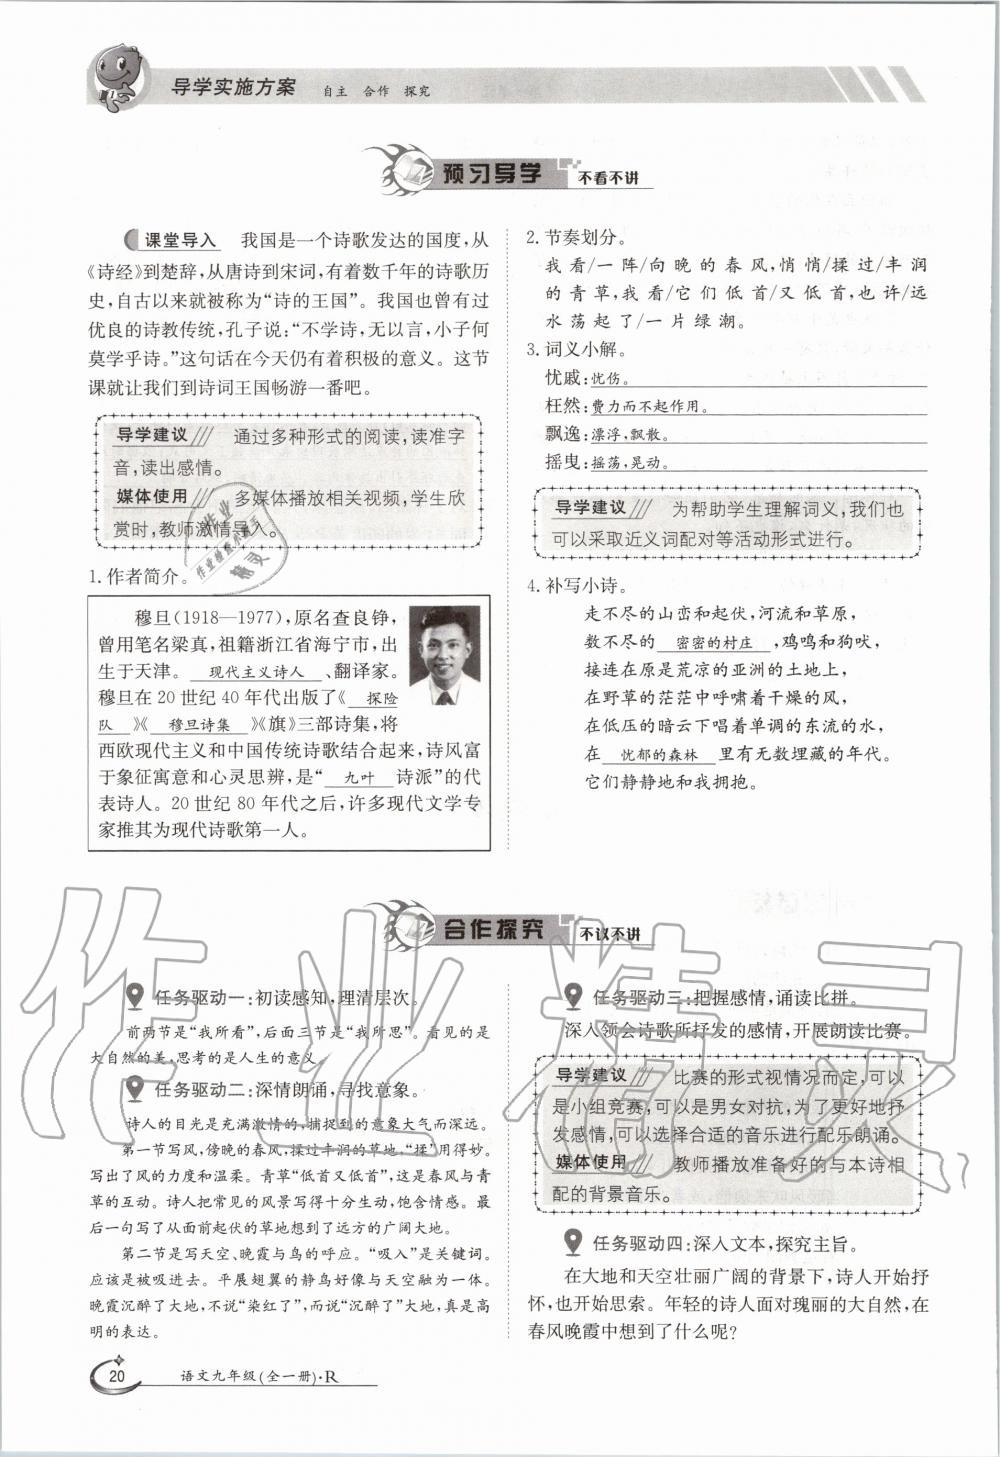 导学实施方案 自主 合作 探究
预习导学 不看不讲
课堂导入 我国是一个诗歌发达的国度,从
《诗经》到楚辞,从唐诗到宋词,有着数千年的诗歌历
史,自古以来就被称为“诗的王国”。我国也曾有过
优良的诗教传统,孔子说:“不学诗,无以言,小子何
莫学乎诗。”这句话在今天仍有着积极的意义。这节
课就让我们到诗词王国畅游一番吧。
导学建议 通过多种形式的阅读,读准字
音,读出感情。
媒体使用 多媒体播放相关视频,学生欣
赏时,教师激情导入。
1. 作者简介。
穆旦(1918—1977),原名查良铮,
曾用笔名梁真,祖籍浙江省海宁市,出
生于天津。 现代主义诗人 、翻译家。
穆旦在 20 世纪 40 年代出版了《 探险
队 》《 穆旦诗集 》《旗》三部诗集,将
西欧现代主义和中国传统诗歌结合起来,诗风富
于象征寓意和心灵思辨,是“ 九叶 诗派”的代
表诗人。20 世纪 80 年代之后,许多现代文学专
家推其为现代诗歌第一人。
2. 节奏划分。
我看/一阵/向晚的春风,悄悄/揉过/丰润
的青草,我看/它们低首/又低首,也许/远
水荡起了/一片绿潮。
3. 词义小解。
忧戚:忧伤。
枉然:费力而不起作用。
飘逸:漂浮,飘散。
摇曳:摇荡,晃动。
导学建议 为帮助学生理解词义,我们也
可以采取近义词配对等活动形式进行。
4. 补写小诗。
走不尽的山峦和起伏,河流和草原,
数不尽的 密密的村庄 ,鸡鸣和狗吠,
接连在原是荒凉的亚洲的土地上,
在野草的茫茫中呼啸着干燥的风,
在低压的暗云下唱着单调的东流的水,
在 忧郁的森林 里有无数埋藏的年代。
它们静静地和我拥抱。
合作探究 不议不讲
任务驱动一:初读感知,理清层次。
前两节是“我所看”,后面三节是“我所思”。看见的是
大自然的美,思考的是人生的意义。
任务驱动二:深情朗诵,寻找意象。
诗人的目光是充满激情的,捕捉到的意象大气而深远。
第一节写风,傍晚的春风,揉过丰润的草地,“揉”用得妙。
写出了风的力度和温柔。青草“低首又低首”,这是春风与青
草的互动。诗人把常见的风景写得十分生动,饱含情感。最
后一句写了从面前起伏的草地想到了远方的广阔大地。
第二节是写天空、晚霞与鸟的呼应。“吸入”是关键词。
应该是被吸进去。平展翅翼的静鸟好像与天空融为一体。
晚霞沉醉了大地,不说“染红了”,而说“沉醉了”大地,真是高
明的表达。
任务驱动三:把握感情,诵读比拼。
深入领会诗歌所抒发的感情,开展朗读比赛。
导学建议 比赛的形式视情况而定,可以
是小组竞赛,可以是男女对抗,为了更好地抒
发感情,可以选择合适的音乐进行配乐朗诵。
媒体使用 教师播放准备好的与本诗相
配的背景音乐。
任务驱动四:深入文本,探究主旨。
在大地和天空壮丽广阔的背景下,诗人开始抒
怀,也开始思索。年轻的诗人面对瑰丽的大自然,在
春风晚霞中想到了什么呢?
20 语文九年级(全一册)·R
作业精灵